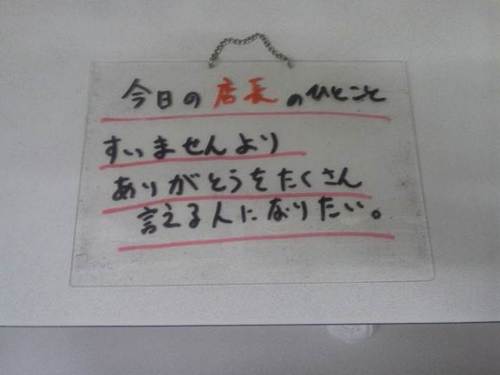 今日の店長のひとこと
すいませんより
ありがとうをたくさん
言える人になりたい。